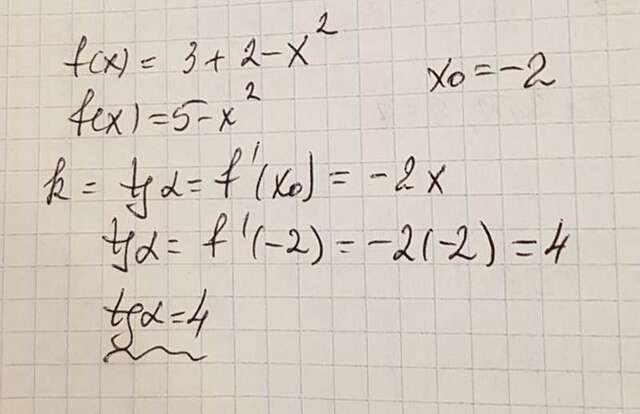 f(x) = 3 + 2 - x²
x₀ = -2
f(x) = 5 - x²
k = tg α = f'(x₀) = -2x
tg α = f'(-2) = -2(-2) = 4
tg α = 4